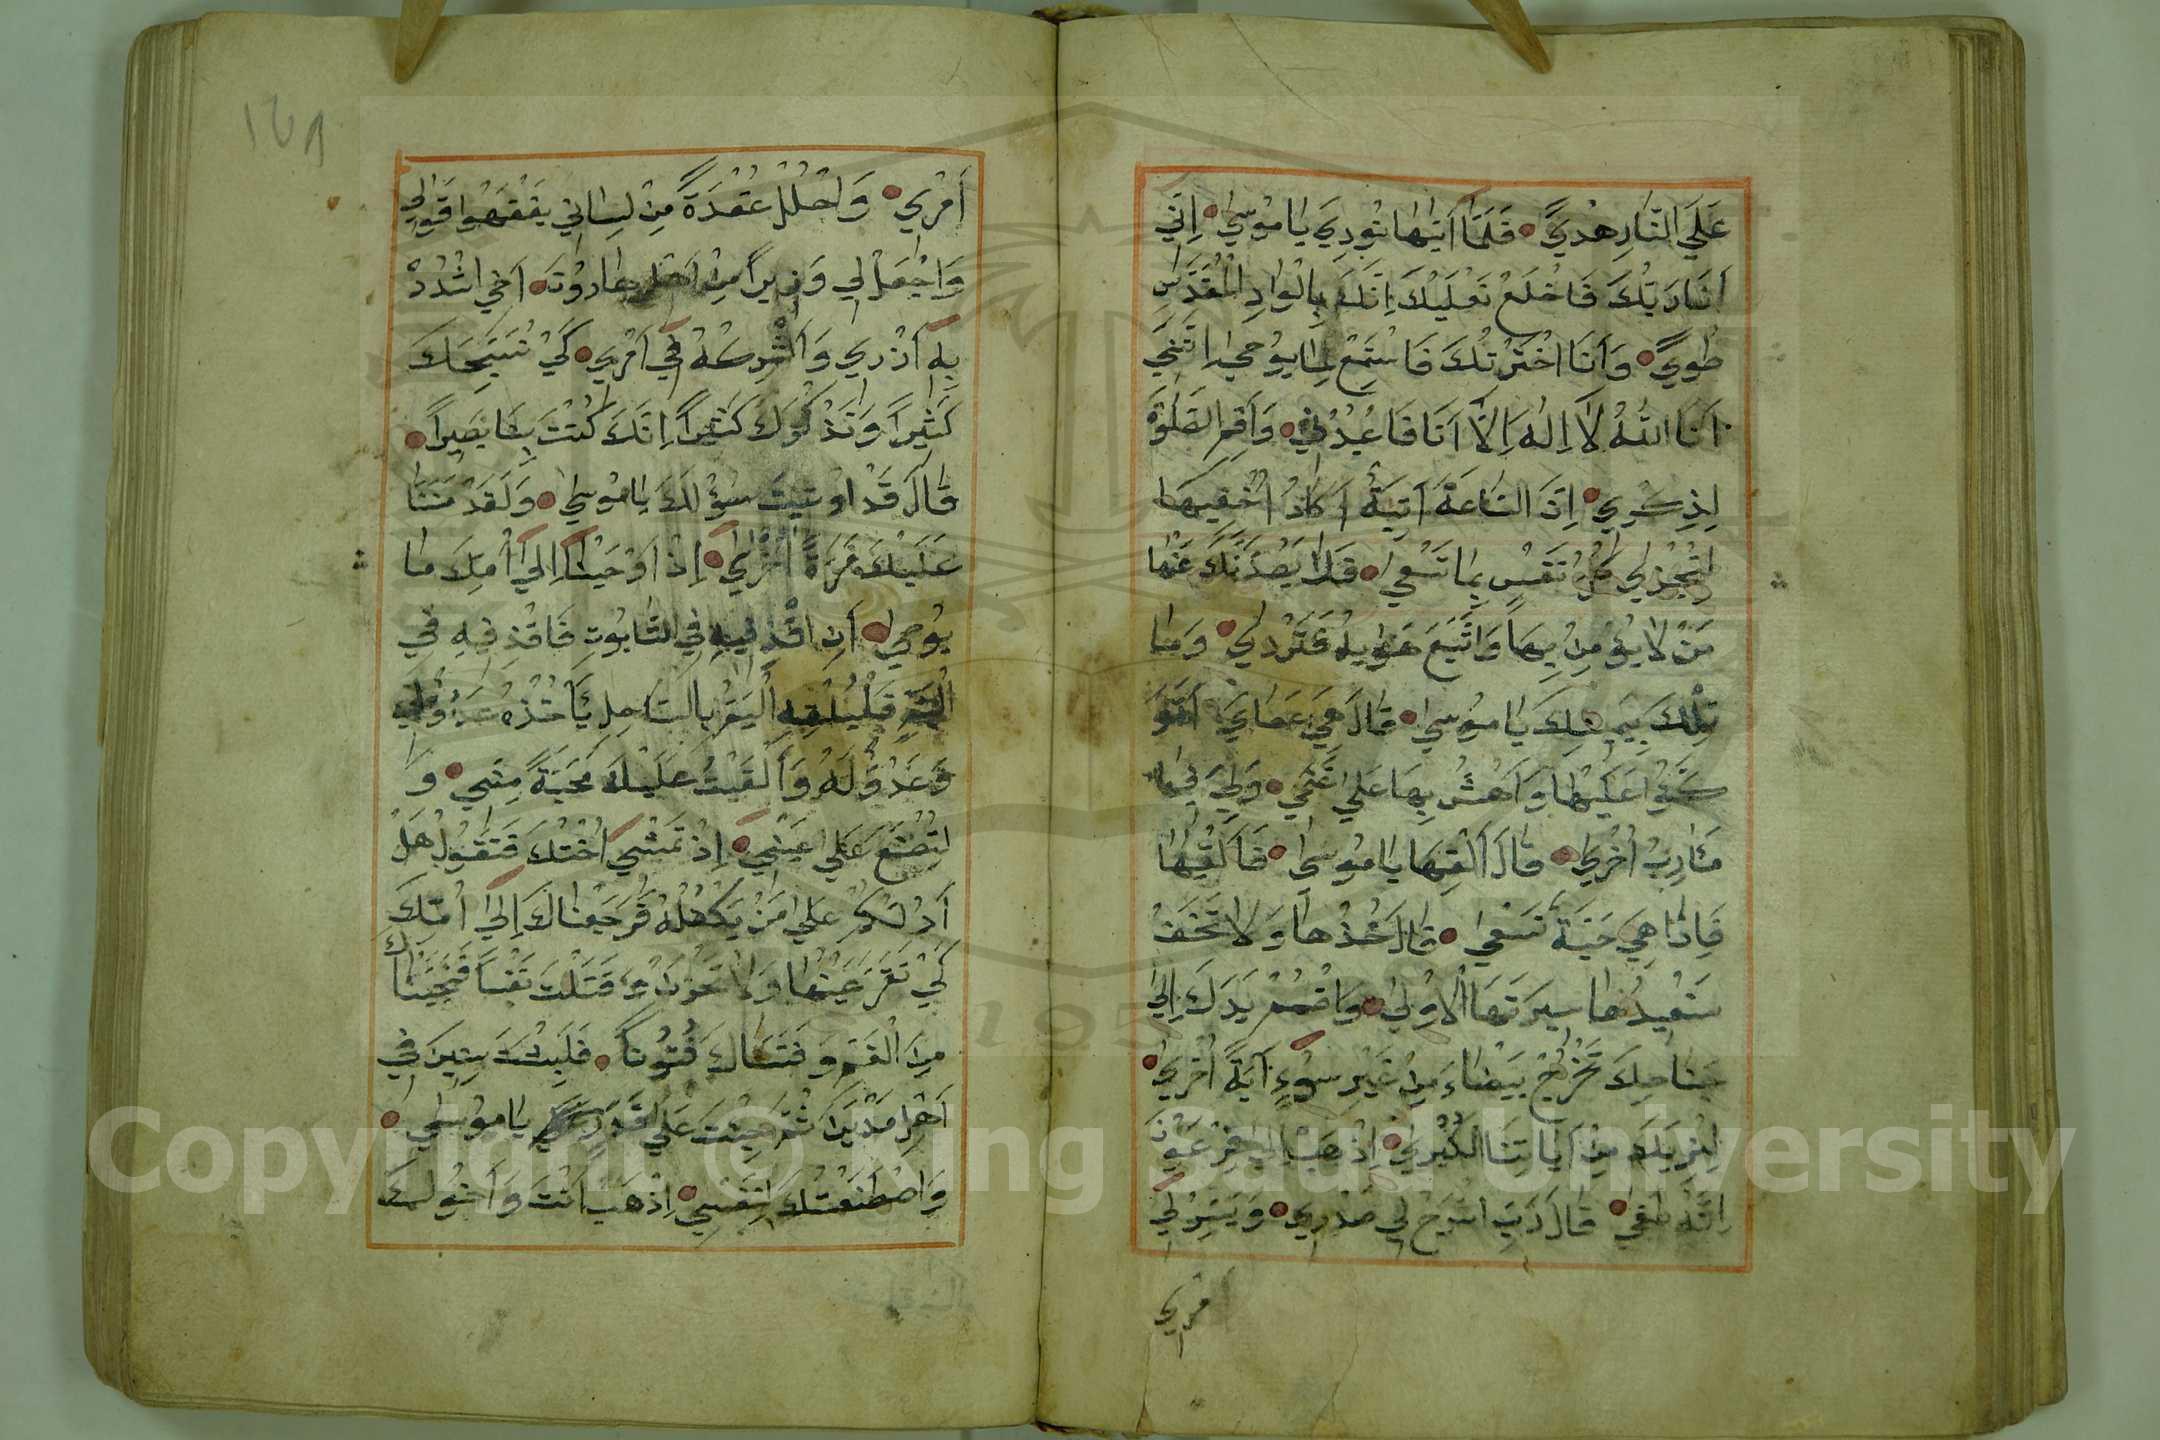 عَلَي النَّارِ هُدًي فَلَمَّا اَتٰيهَا نُودِيَ يَا مُوسٰي اِنِّي
اَنَا رَبُّكَ فَاخْلَعْ نَعْلَيْكَ اِنَّكَ بِالْوَادِ الْمُقَدَّسِ
طُوًي وَاَنَا اخْتَرْتُكَ فَاسْتَمِعْ لِمَا يُوحٰي اِنَّنِي
اَنَا اللّٰهُ لَا اِلٰهَ اِلَّا اَنَا فَاعْبُدْنِي وَاَقِمِ الصَّلٰوةَ
لِذِكْرِي اِنَّ السَّاعَةَ اٰتِيَةٌ اَكَادُ اُخْفِيهَا
لِتُجْزٰي كُلُّ نَفْسٍ بِمَا تَسْعٰي فَلَا يَصُدَّنَّكَ عَنْهَا
مَنْ لَا يُؤْمِنُ بِهَا وَاتَّبَعَ هَوٰيهُ فَتَرْدٰي وَمَا
تِلْكَ بِيَمِينِكَ يَا مُوسٰي قَالَ هِيَ عَصَايَ اَتَوَ
كَّؤُا عَلَيْهَا وَاَهُشُّ بِهَا عَلٰي غَنَمِي وَلِيَ فِيهَا
مَاٰرِبُ اُخْرٰي قَالَ اَلْقِهَا يَا مُوسٰي فَاَلْقٰيهَا
فَاِذَا هِيَ حَيَّةٌ تَسْعٰي قَالَ خُذْهَا وَلَا تَخَفْ
سَنُعِيدُهَا سِيرَتَهَا الْاُولٰي وَاضْمُمْ يَدَكَ اِلٰي
جَنَاحِكَ تَخْرُجْ بَيْضَاءَ مِنْ غَيْرِ سُوءٍ اٰيَةً اُخْرٰي
لِنُرِيَكَ مِنْ اٰيَاتِنَا الْكُبْرٰي اِذْهَبْ اِلٰي فِرْعَوْنَ
اِنَّهُ طَغٰي قَالَ رَبِّ اشْرَحْ لِي صَدْرِي وَيَسِّرْ لِي
مري
١٤٨
اَمْرِي وَاحْلُلْ عُقْدَةً مِنْ لِسَانِي يَفْقَهُوا قَوْلِي
وَاجْعَلْ لِي وَزِيرًا مِنْ اَهْلِي هَارُونَ اَخِي اشْدُدْ
بِهِ اَزْرِي وَاَشْرِكْهُ فِي اَمْرِي كَيْ نُسَبِّحَكَ
كَثِيرًا وَنَذْكُرَكَ كَثِيرًا اِنَّكَ كُنْتَ بِنَا بَصِيرًا
قَالَ قَدْ اُوتِيتَ سُؤْلَكَ يَا مُوسٰي وَلَقَدْ مَنَنَّا
عَلَيْكَ مَرَّةً اُخْرٰي اِذْ اَوْحَيْنَا اِلٰي اُمِّكَ مَا
يُوحٰي اَنِ اقْذِفِيهِ فِي التَّابُوتِ فَاقْذِفِيهِ فِي
الْيَمِّ فَلْيُلْقِهِ الْيَمُّ بِالسَّاحِلِ يَاْخُذْهُ عَدُوٌّ لِي
وَعَدُوٌّ لَهُ وَاَلْقَيْتُ عَلَيْكَ مَحَبَّةً مِنِّي وَ
لِتُصْنَعَ عَلٰي عَيْنِي اِذْ تَمْشِي اُخْتُكَ فَتَقُولُ هَلْ
اَدُلُّكُمْ عَلٰي مَنْ يَكْفُلُهُ فَرَجَعْنَاكَ اِلٰي اُمِّكَ
كَيْ تَقَرَّ عَيْنُهَا وَلَا تَحْزَنَ وَقَتَلْتَ نَفْسًا فَنَجَّيْنَاكَ
مِنَ الْغَمِّ وَفَتَنَّاكَ فُتُونًا فَلَبِثْتَ سِنِينَ فِي
اَهْلِ مَدْيَنَ ثُمَّ جِئْتَ عَلٰي قَدَرٍ يَا مُوسٰي
وَاصْطَنَعْتُكَ لِنَفْسِي اِذْهَبْ اَنْتَ وَاَخُوكَ
Copyright © King Saud University